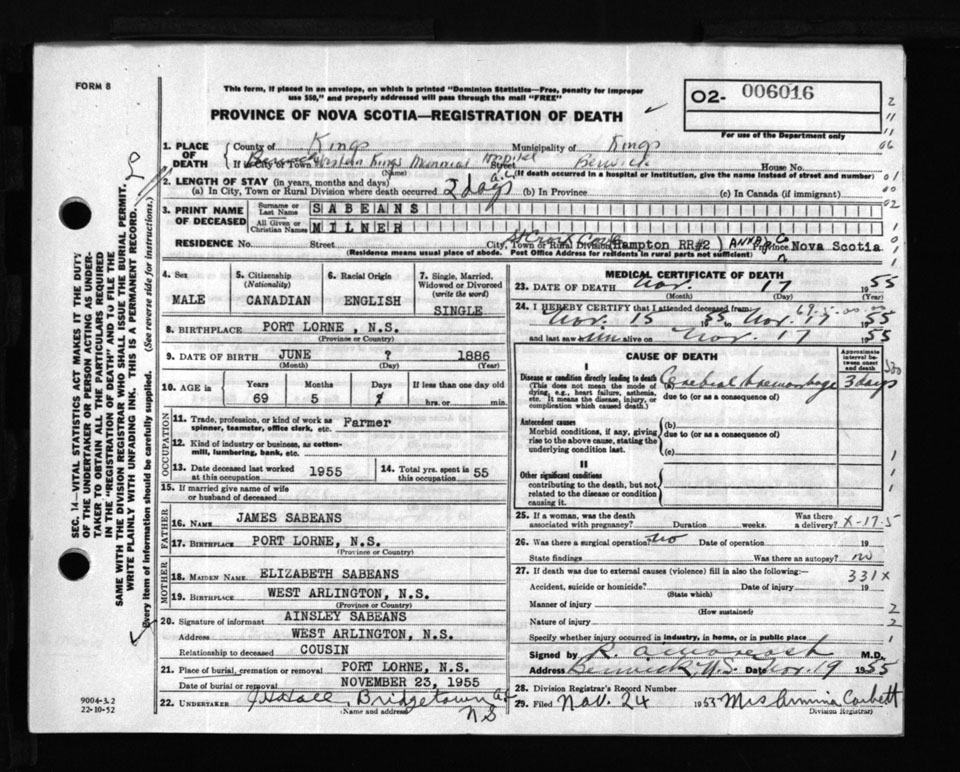 FORM 8
This form, if placed in an envelope, on which is printed "Dominion Statistics—Free, penalty for improper
use $50," and properly addressed will pass through the mail "FREE"
O2- 006016
For use of the Department only
PROVINCE OF NOVA SCOTIA—REGISTRATION OF DEATH
1. PLACE OF DEATH
County of Kings Municipality of Kings
If in City or Town Western Kings Memorial Hospital Street Berwick House No.
(Name) (If death occurred in a hospital or institution, give the name instead of street and number)
2. LENGTH OF STAY (in years, months and days)
(a) In City, Town or Rural Division where death occurred 2 days (b) In Province (c) In Canada (if immigrant)
3. PRINT NAME OF DECEASED
Surname or Last Name SABEANS
All Given or Christian Names MILNER
RESIDENCE No. Street City, Town or Rural Division Hampton RR#2) ANNA. Co Province Nova Scotia
(Residence means usual place of abode. Post Office Address for residents in rural parts not sufficient)
4. Sex MALE
5. Citizenship (Nationality) CANADIAN
6. Racial Origin ENGLISH
7. Single, Married, Widowed or Divorced (write the word) SINGLE
8. BIRTHPLACE PORT LORNE, N.S.
(Province or Country)
9. DATE OF BIRTH JUNE ? 1886
(Month) (Day) (Year)
10. AGE in Years 69 Months 5 Days ? If less than one day old hrs. or min.
OCCUPATION
11. Trade, profession, or kind of work as spinner, teamster, office clerk, etc. Farmer
12. Kind of industry or business, as cotton-mill, lumbering, bank, etc.
13. Date deceased last worked at this occupation 1955
14. Total yrs. spent in this occupation 55
15. If married give name of wife or husband of deceased
FATHER
16. NAME JAMES SABEANS
17. BIRTHPLACE PORT LORNE, N.S.
(Province or Country)
MOTHER
18. MAIDEN NAME ELIZABETH SABEANS
19. BIRTHPLACE WEST ARLINGTON, N.S.
(Province or Country)
20. Signature of informant AINSLEY SABEANS
Address WEST ARLINGTON, N.S.
Relationship to deceased COUSIN
21. Place of burial, cremation or removal PORT LORNE, N.S.
Date of burial or removal NOVEMBER 23, 1955
22. UNDERTAKER Bridgetown NS
(Name and address)
MEDICAL CERTIFICATE OF DEATH
23. DATE OF DEATH Nov. 17 1955
(Month) (Day) (Year)
24. I HEREBY CERTIFY that I attended deceased from
Nov. 15 1955 to Nov. 17 1955
and last saw him alive on Nov. 17 1955
CAUSE OF DEATH
Approximate interval between onset and death
I
Disease or condition directly leading to death (a) Cerebral haemorrhage 3 days
(This does not mean the mode of dying, e.g., heart failure, asthenia, etc. It means the disease, injury, or complication which caused death.)
due to (or as a consequence of)
Antecedent causes
Morbid conditions, if any, giving rise to the above cause, stating the underlying condition last.
(b)
due to (or as a consequence of)
(c)
II
Other significant conditions
contributing to the death, but not related to the disease or condition causing it.
25. If a woman, was the death associated with pregnancy? Duration weeks. Was there a delivery? X-17-5
26. Was there a surgical operation? no Date of operation 19
State findings Was there an autopsy? no
27. If death was due to external causes (violence) fill in also the following:— 331X
Accident, suicide or homicide? Date of injury 19
(State which)
Manner of injury
(How sustained)
Nature of injury
Specify whether injury occurred in industry, in home, or in public place
Signed by M.D.
Address Berwick, N.S. Date Nov. 19 1955
28. Division Registrar's Record Number
29. Filed Nov. 24 1953 Mrs Armina Corbett
(Division Registrar)
SEC. 14—VITAL STATISTICS ACT MAKES IT THE DUTY
OF THE UNDERTAKER OR PERSON ACTING AS UNDER-
TAKER TO OBTAIN ALL THE PARTICULARS REQUIRED
IN THE "REGISTRATION OF DEATH" AND TO FILE THE
SAME WITH THE DIVISION REGISTRAR WHO SHALL ISSUE THE BURIAL PERMIT.
WRITE PLAINLY WITH UNFADING INK. THIS IS A PERMANENT RECORD.
Every item of information should be carefully supplied. (See reverse side for instructions.)
9004-3.2
22-10-52